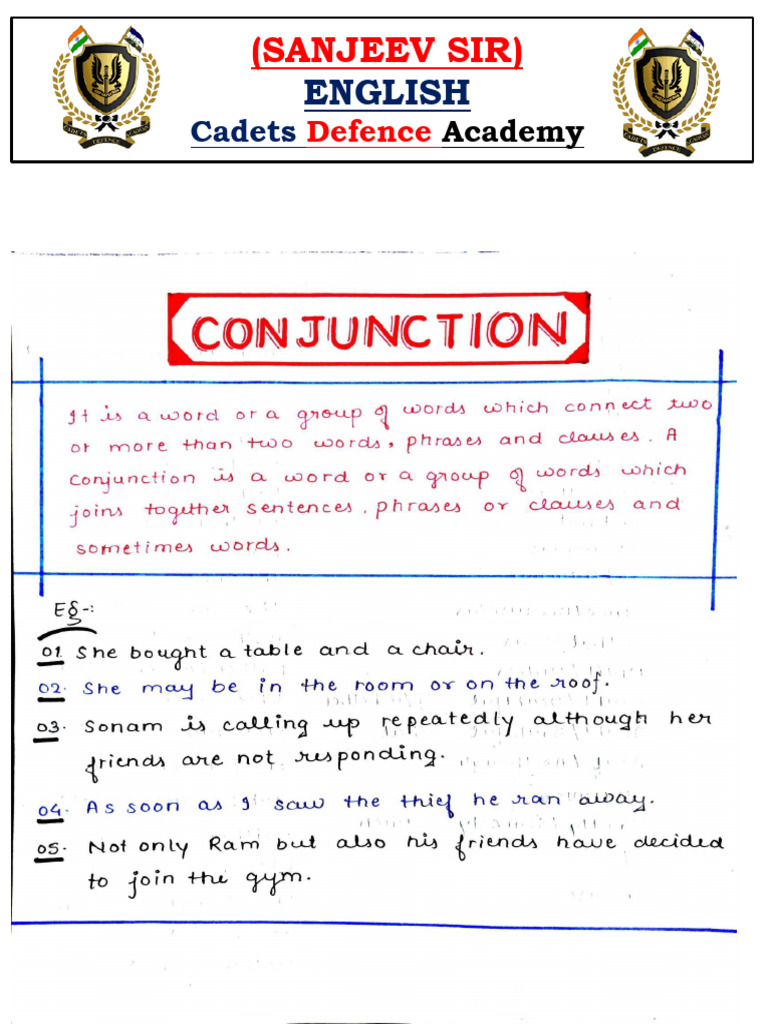 (SANJEEV SIR)
ENGLISH
Cadets Defence Academy
CADETS DEFENCE
CADETS DEFENCE
CONJUNCTION
It is a word or a group of words which connect two
or more than two words, phrases and clauses. A
conjunction is a word or a group of words which
joins together sentences, phrases or clauses and
sometimes words.
Eg-:
01. She bought a table and a chair.
02. She may be in the room or on the roof.
03. Sonam is calling up repeatedly although her
friends are not responding.
04. As soon as I saw the thief he ran away.
05. Not only Ram but also his friends have decided
to join the gym.